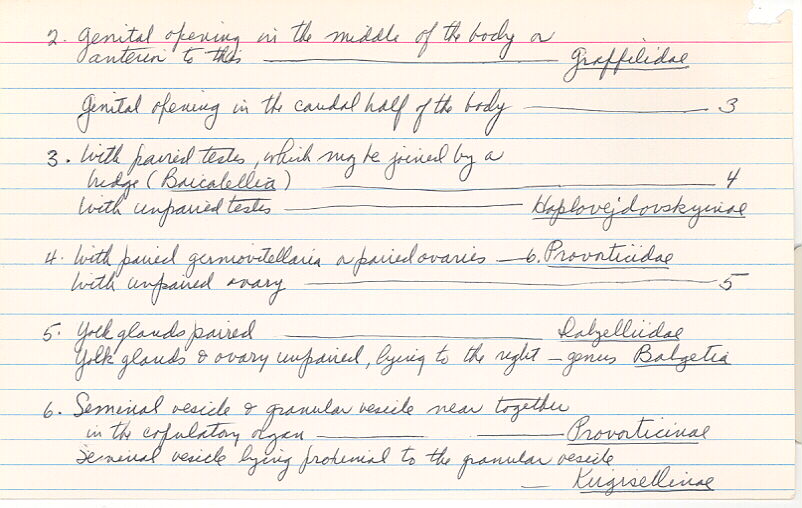 2. Genital opening in the middle of the body or
anterior to this ——— Graffilidae
Genital opening in the caudal half of the body ——— 3
3. With paired testes, which may be joined by a
bridge (Baicalellia) ——— 4
With unpaired testes ——— Haplovejdovskyinae
4. With paired germovitellaria or paired ovaries — 6. Provorticidae
With unpaired ovary ——— 5
5. Yolk glands paired ——— Dalyelliidae
Yolk glands & ovary unpaired, lying to the right — genus Balgetia
6. Seminal vesicle & granular vesicle near together
in the copulatory organ ——— ——— Provorticinae
Seminal vesicle lying proximal to the granular vesicle
— Kirgisellinae